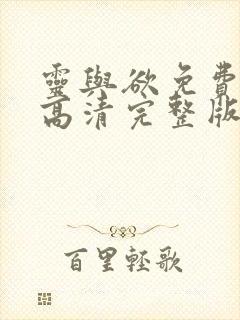 靈與欲免費
高清完整版
百里輕歌